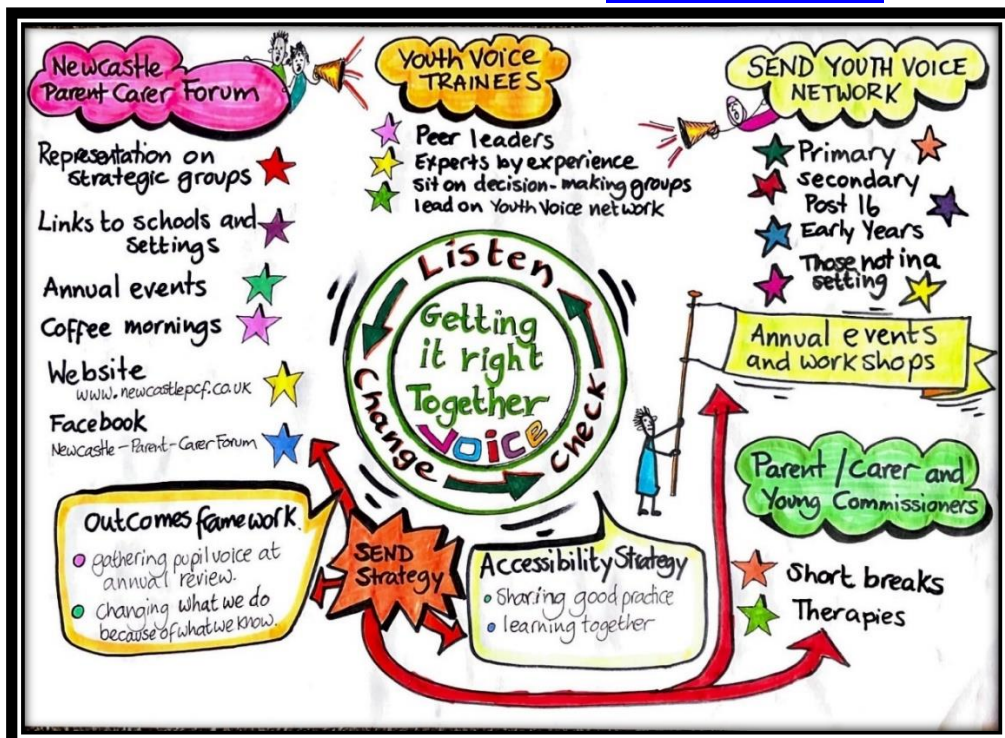 Newcastle
Parent Carer Forum
Representation on
strategic groups
Links to schools and
settings
Annual events
Coffee mornings
Website
www.newcastlepcf.co.uk
Facebook
Newcastle-Parent-Carer Forum
Youth Voice
TRAINEES
Peer leaders
Experts by experience
sit on decision-making groups
lead on Youth Voice network
SEND YOUTH VOICE
NETWORK
Primary
secondary
Post 16
Early Years
Those not in a
setting
Annual events
and workshops
Listen
Change
Check
Getting
it right
Together
VOICE
Parent/Carer and
Young Commissioners
Short breaks
Therapies
Outcomes framework.
gathering pupil voice at
annual review.
changing what we do
because of what we know.
SEND
Strategy
Accessibility Strategy
Sharing good practice
learning together